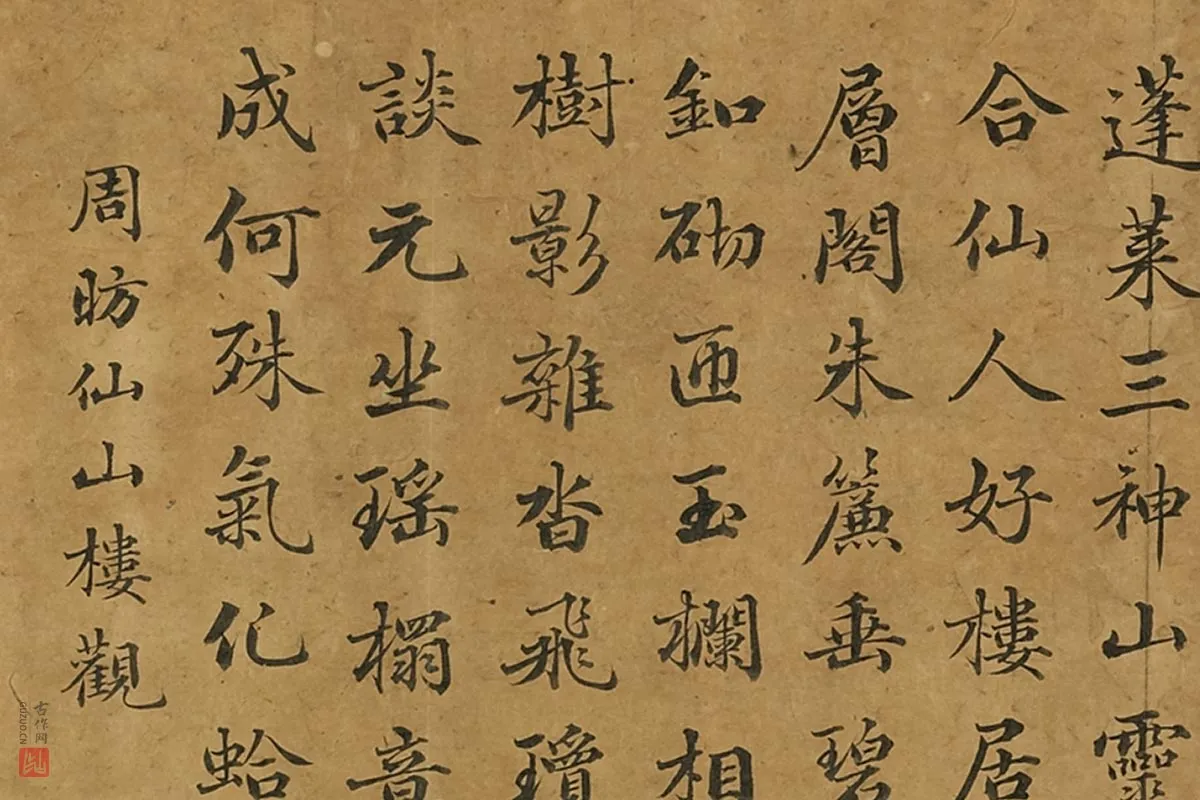 蓬莱三神山靈
合仙人好樓居
層閣朱簾垂碧
釦砌匝玉欄相
樹影雜沓飛瓊
談元坐瑶榻音
成何殊氣化蛤
周昉仙山樓觀
古作网
GUZUO.CN